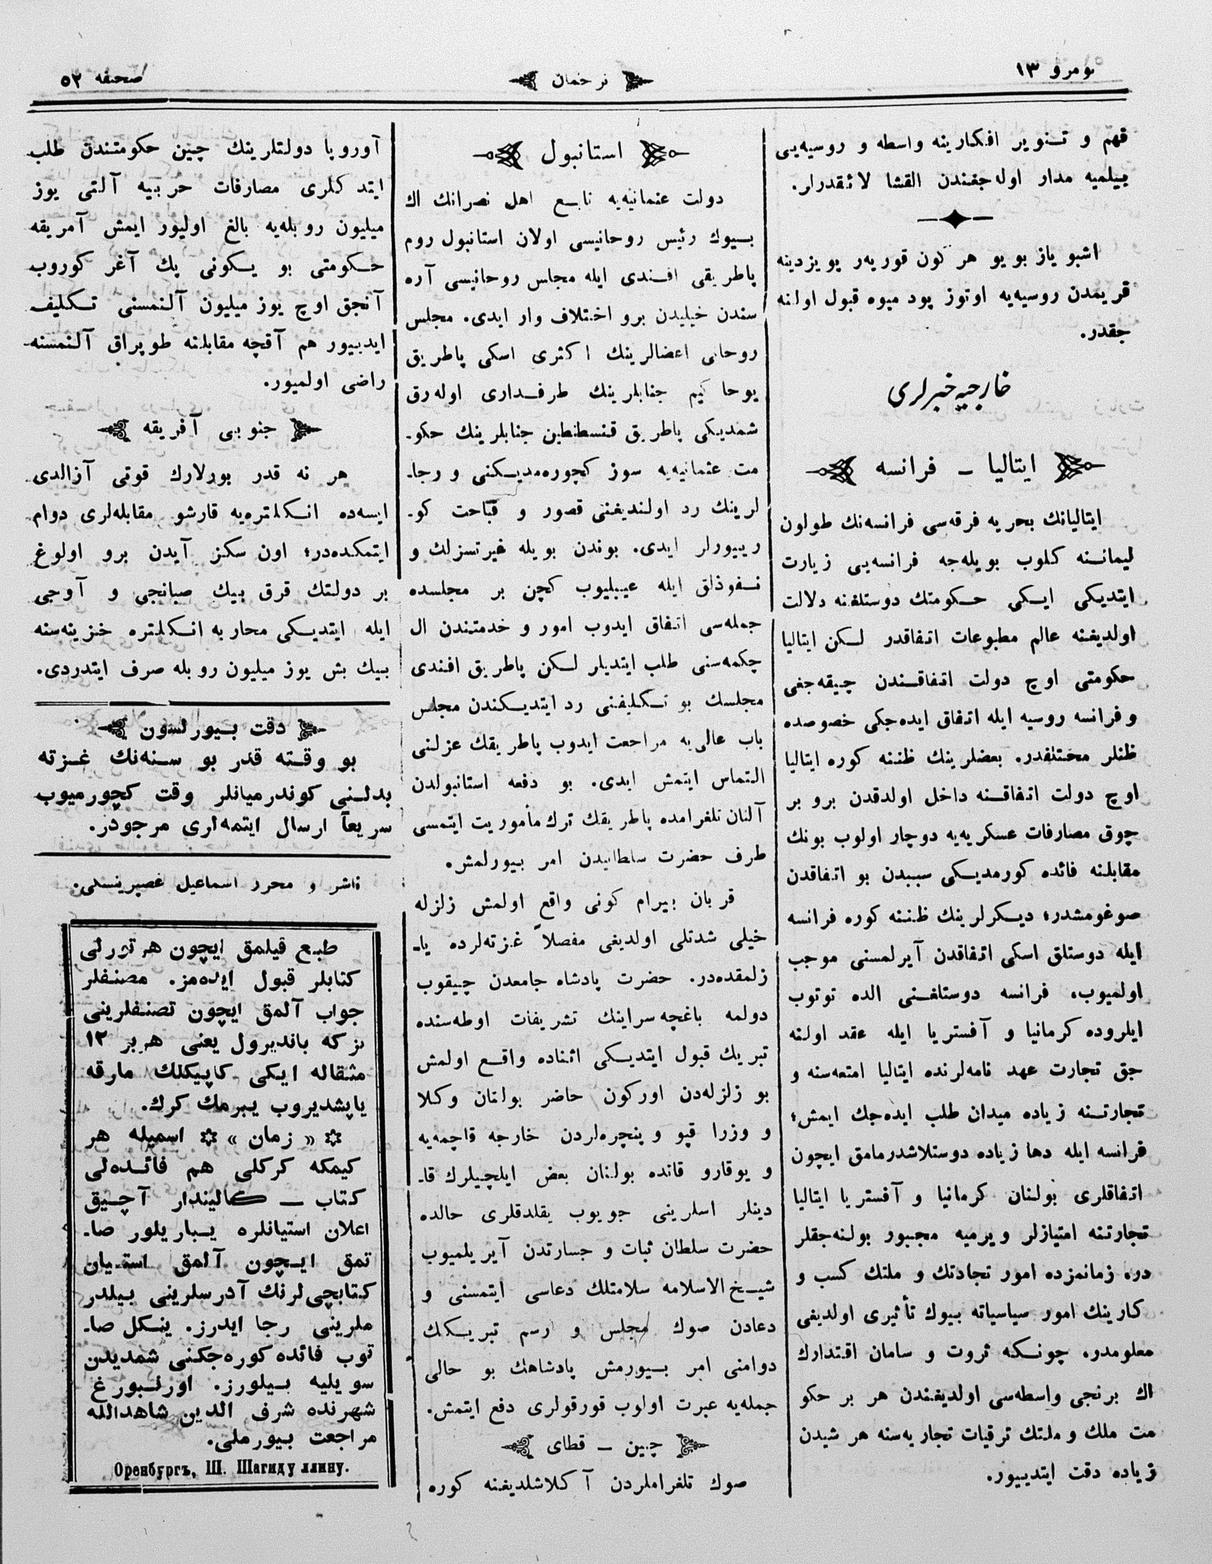 نومرو ١٣
ترجمان
صحیفه ٥٢
فهم و تـنویر افکارینه واسطه و روسیه‌یی
بیلمیه مدار اوله جغندن القشا لائقدرلر.
اشبو یاز بویو هر کون قوریه‌ر پویزدینه
قریمدن روسیه‌یه اوتوز پود میوه قبول اولنه
جقدر.
خارجیه خبرلری
ایتالیا ـ فرانسه
ایتالیانك بحریه فرقه‌سی فرانسه‌نك طولون
لیمانـنه کلوب بویله‌جه فرانسه‌یی زیارت
ایتدیکی ایـکی حـکومتك دوستلغنه دلالت
اولدیغـنه عالم مطبوعات اتـفاقدر لـکن ایتالیا
حکومتی اوچ دولت اتـفاقـندن چیقه‌جغی
و فرانسه روسیه ایله اتـفاق ایده‌جکی خصوصده
ظنلر مختلفدر. بعضلرینك ظنـنه کوره ایتالیا
اوچ دولت اتـفاقـنه داخل اولدقدن برو بر
چوق مصارفات عسکریه‌یه دوچار اولوب بونك
مقابلـنه فائده کورمدیـکی سببدن بو اتـفاقدن
صوغومشدر؛ دیـکرلرینك ظنـنه کوره فرانسه
ایله دوستلق اسکی اتـفاقدن آیرلمسنی موجب
اولمیوب، فرانسه دوستلغـنی الده توتوب
ایلروده کرمانیا و آفستریا ایله عقد اولنه
جق تجارت عهد نامه‌لرنده ایتالیا امتعه‌سنه و
تجارتـنه زیاده میدان طلب ایده‌جك ایمش؛
فرانسه ایله دها زیاده دوستلاشدرمامق ایچون
اتـفاقلری بولنان کرمانیا و آفستریا ایتالیا
تجارتـنه امتیازلر ویرمیه مجبور بولنه‌جقلر
در. زمانمزده امور تجادتك و ملتك کسب و
کارینك امور سیاسیاته بیوك تأثیری اولدیغی
معلومدر. چونـکه ثروت و سامان اقتدارك
اك برنجی واسطه‌سی اولدیغـندن هر بر حکو
مت ملك و ملتك ترقیات تجاریه‌سنه هر شیدن
زیاده دقت ایتدیـیور.
استانبول
دولت عثمانیه‌یه تابـع اهل نصرانك اك
بـیوك رئیس روحانیسی اولان استانبول روم
پاطریقی افـندی ایله مجلس روحانیسی آره
سندن خیلیدن برو اختلاف وار ایدی. مجلس
روحانی اعضالرینك اکثری اسکی پاطریق
یوحاکیم جنابلرینك طرفـداری اوله‌رق
شمدیـکی پاطریق قـنسطنطین جنابلرینك حکو-
مت عثمانیه‌یه سوز کچوره‌مدیـکـنی و رجا-
لرینك رد اولندیغـنی قصور و قباحت کو-
ریـیورلر ایدی. بوندن بویله غیرتسزلك و
نـفوذلق ایله عیبلیوب کچن بر مجلسده
جمله‌سی اتـفاق ایدوب امور و خدمتـندن ال
چکمه‌سنی طلب ایتدیلر لـکن پاطریق افـندی
مجلسك بو تـکلیفـنی رد ایتدیـکـندن مجلس
باب عالی‌یه مراجعت ایدوب پاطریقك عزلـنی
التماس ایتمش ایدی. بو دفعه استانبولدن
آلنان تلغرامده پاطریقك ترك مأموریت ایتمسی
طرف حضرت سلطانیدن امر بـیورلمش.
قربان بیرام کونی واقع اولمش زلزله
خیلی شدتلی اولدیغی مفصلاً غزته‌لرده یا-
زلمقده‌در. حضرت پادشاه جامعدن چیقوب
دولمه باغچه سراینك تشریفات اوطه‌سنده
تبریك قبول ایتدیـکی اثـناده واقـع اولمش
بو زلزله‌دن اورکون حاضر بولنان وکلا
و وزرا قپو و پنچره‌لردن خارجه قاچمه‌یه
و یوقارو قاتده بولنان بعض ایلچیلرك قا-
دینلر اسلرینی جویوب یقلدقلری حالده
حضرت سلطان ثبات و جسارتدن آیریلمیوب
شیـخ الاسلامه سلامتلك دعاسی ایتمسنی و
دعادن صوك مجلس و رسم تبریـکك
دوامنی امر بـیورمش پادشاهك بو حالی
جمله‌یه عبرت اولوب قورقولری دفع ایتمش.
چین ـ قطای
صوك تلغراملردن آکلاشلدیغـنه کوره
آوروپا دولتلرینك چین حکومتـندن طلب
ایتدکلری مصارفات حربیه آلتی یوز
میلیون روبله‌یه بالغ اولیور ایمش آمریقه
حـکومتی بو یـکونی پك آغر کوروب
آنجق اوچ یوز میلیون آلنمسنی تـکلیف
ایدیـیور هم آقچه مقابلنه طوپراق آلنمسنه
راضی اولمیور.
جنوبی آفریقه
هر نه قدر بورلارك قوتی آزالدی
ایسه‌ده انـکلتره‌یه قارشو مقابله‌لری دوام
ایتمکده‌در؛ اون سکز آیدن برو اولوغ
بر دولتك قرق بیك صبانجی و آوجی
ایله ایتدیـکی محاربه انـکلتره خزینه‌سنه
بیك بش یوز میلیون روبله صرف ایتدردی.
دقت بـیورلسون
بو وقـته قدر بو سـنه‌نك غـزته
بدلـنی کوندرمیانلر وقت کچورمیوب
سریعاً ارسال ایتمه‌لری مرجودر.
ناشر و محرر اسماعیل غصپرینسکی.
طبع قیلمق ایچون هر تورلی
کتابلر قبول ایده‌مز. مصنفلر
جواب آلمق ایچون تصنفلرینی
بزکه باندیرول یعنی هر بر ١٢
مثقاله ایکی کاپیکلك مارقه
یاپشدیروب یبرمك کرك.
« زمان » اسمیله هر
کیمکه کرکلی هم فائـده‌لی
کتاب ــ کالیندار آچـیق
اعلان استیانلره یـباریلور صا-
تمق ایـچون آلمق استـیان
کتابچی‌لرنك آدرسلرینی بیلدر
ملرینی رجا ایدرز. یـنکل صا-
توب فائده کوره‌جکنی شمدیدن
سویلیه بـیلورز. اورنـبورغ
شهرنده شرف الدین شاهدالله
مراجعت بـیورملی.
Оренбургъ, Ш. Шагидуллину.